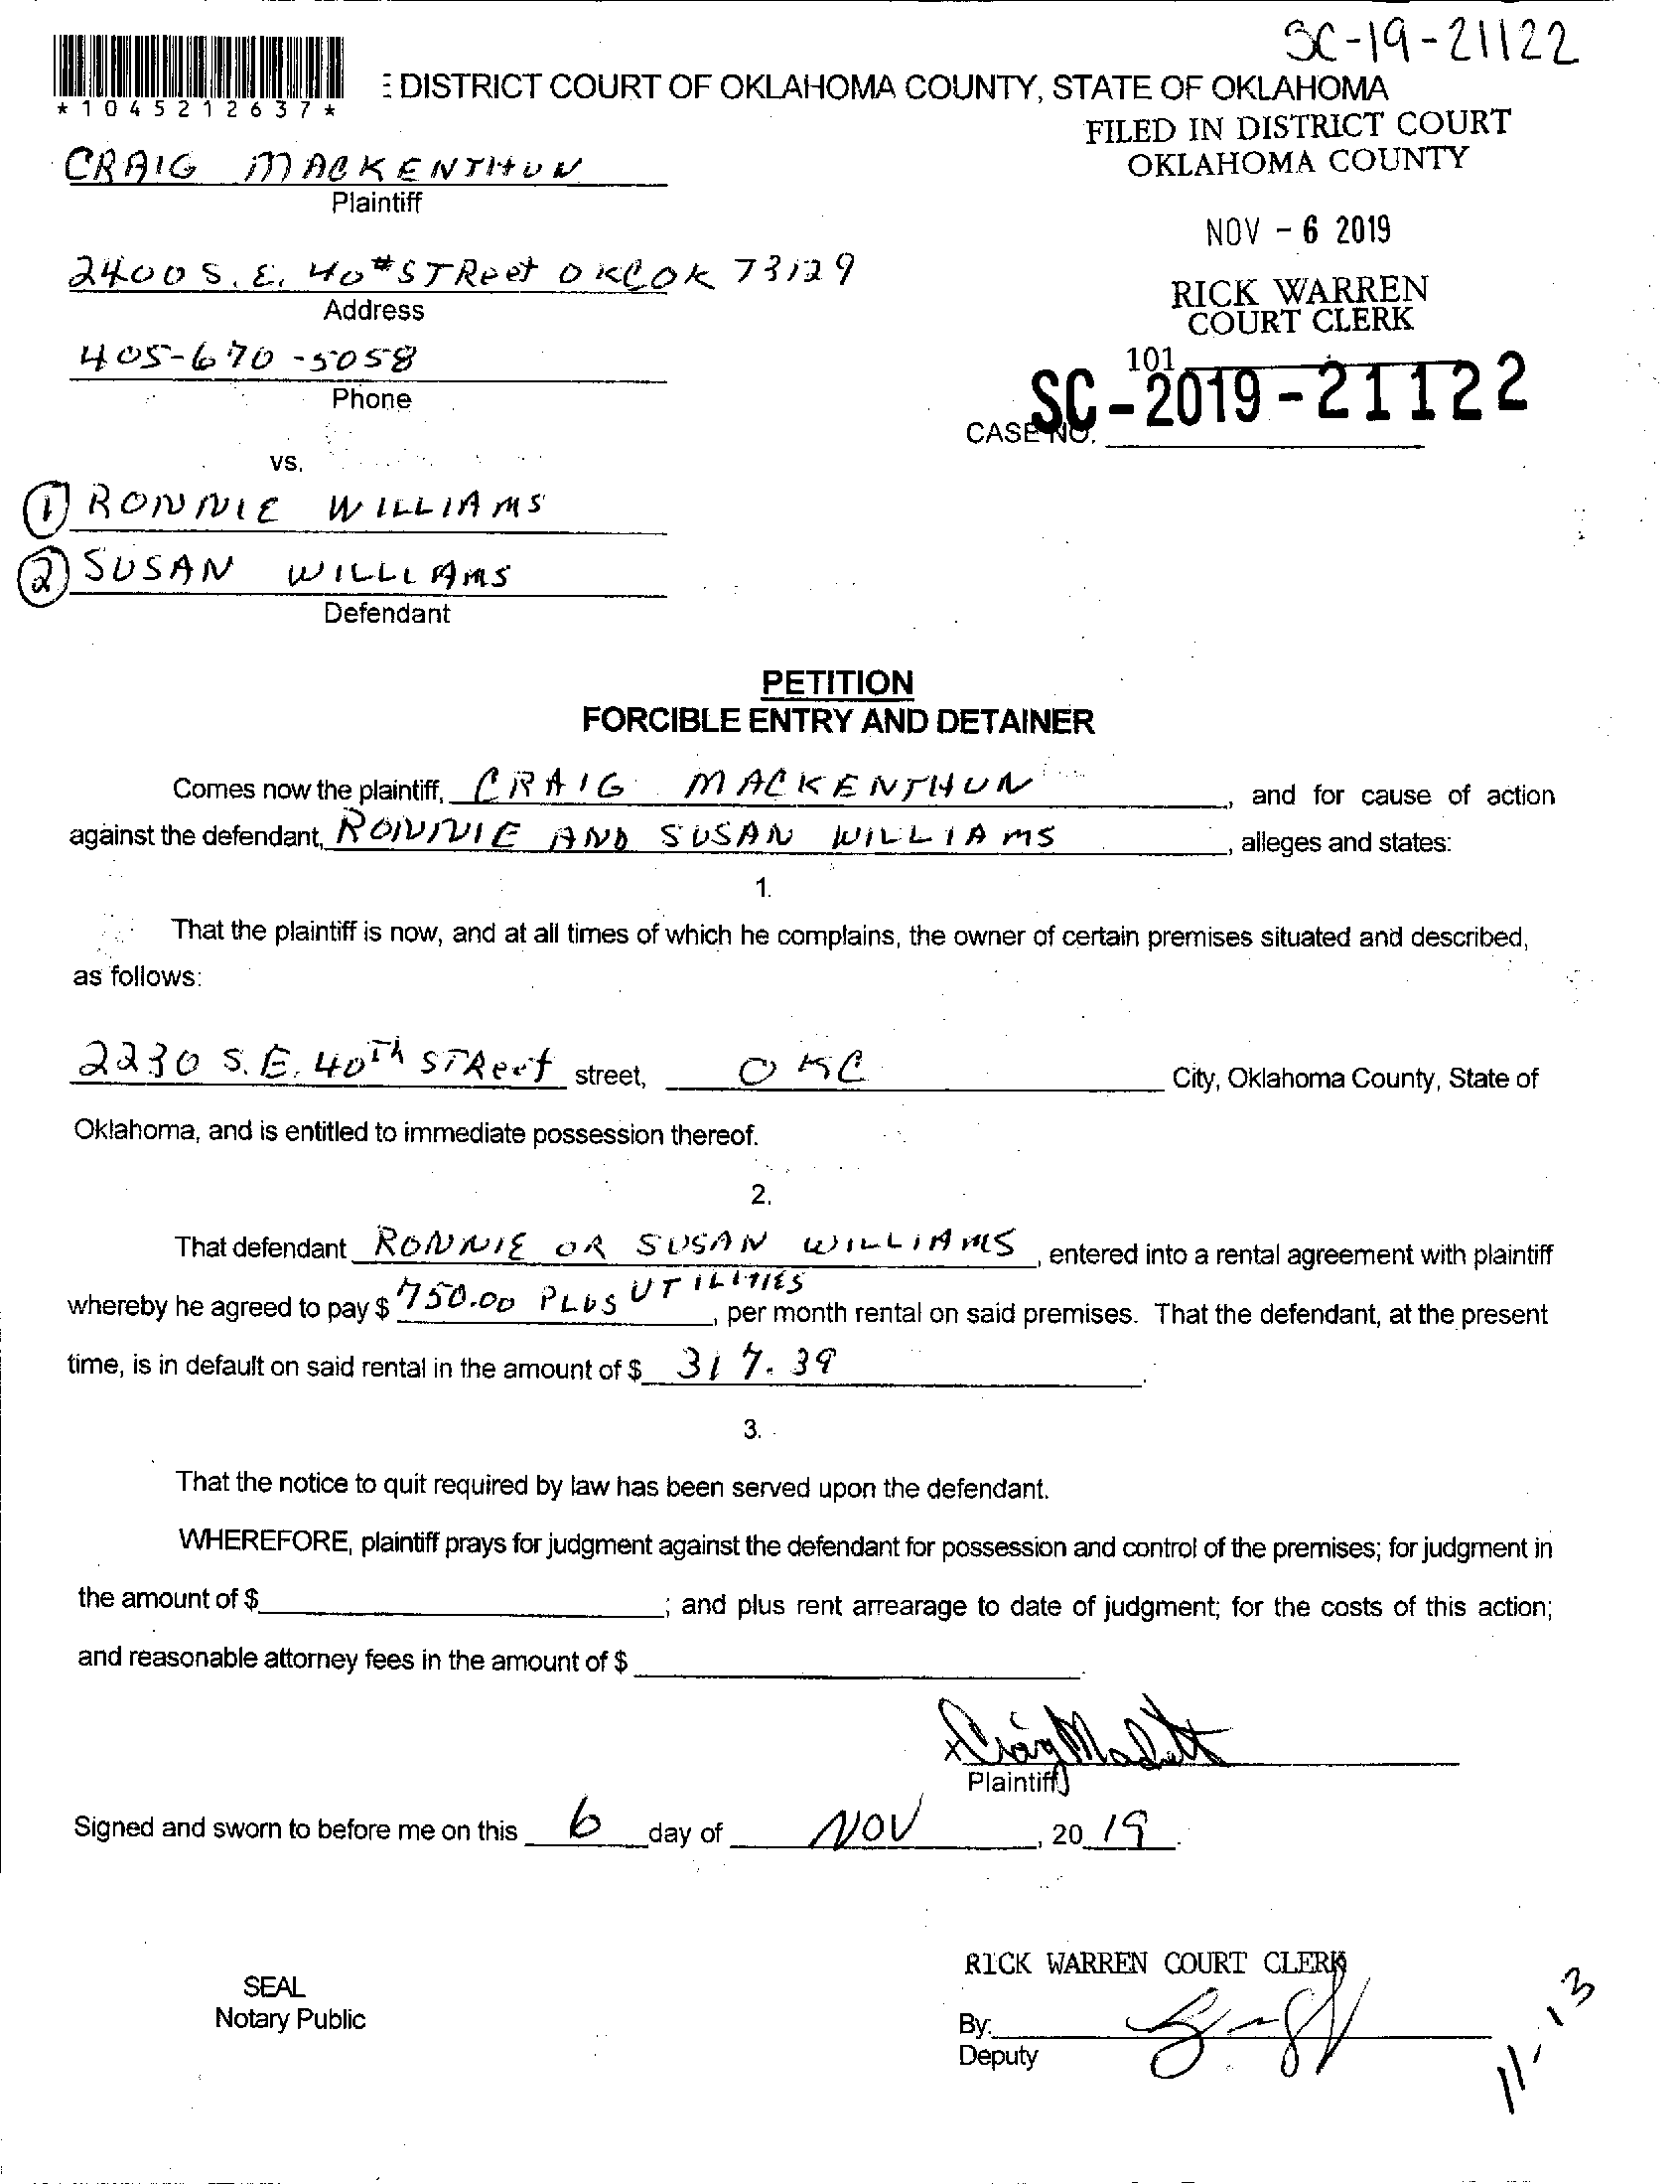 SC-19-21122
DISTRICT COURT OF OKLAHOMA COUNTY, STATE OF OKLAHOMA
*1045212637*
FILED IN DISTRICT COURT
OKLAHOMA COUNTY
CRAIG MACKENTHUN
Plaintiff
NOV - 6 2019
2400 S. E. 40th STReet OKC OK 73129
Address
RICK WARREN
COURT CLERK
405-670-5058
Phone
101
CASE NO. SC-2019-21122
vs.
1 RONNIE WILLIAMS
2 SUSAN WILLIAMS
Defendant
PETITION
FORCIBLE ENTRY AND DETAINER
Comes now the plaintiff, CRAIG MACKENTHUN, and for cause of action
against the defendant, RONNIE AND SUSAN WILLIAMS, alleges and states:
1.
That the plaintiff is now, and at all times of which he complains, the owner of certain premises situated and described,
as follows:
2230 S.E. 40Th STReet street, OKC City, Oklahoma County, State of
Oklahoma, and is entitled to immediate possession thereof.
2.
That defendant RONNIE OR SUSAN WILLIAMS, entered into a rental agreement with plaintiff
whereby he agreed to pay $ 750.00 PLUS UTILITIES, per month rental on said premises. That the defendant, at the present
time, is in default on said rental in the amount of $ 317.39.
3.
That the notice to quit required by law has been served upon the defendant.
WHEREFORE, plaintiff prays for judgment against the defendant for possession and control of the premises; for judgment in
the amount of $ ; and plus rent arrearage to date of judgment; for the costs of this action;
and reasonable attorney fees in the amount of $ .
x Craig
Plaintiff
Signed and sworn to before me on this 6 day of NOV, 20 19.
RICK WARREN COURT CLERK
SEAL
Notary Public
By:
Deputy
11-13